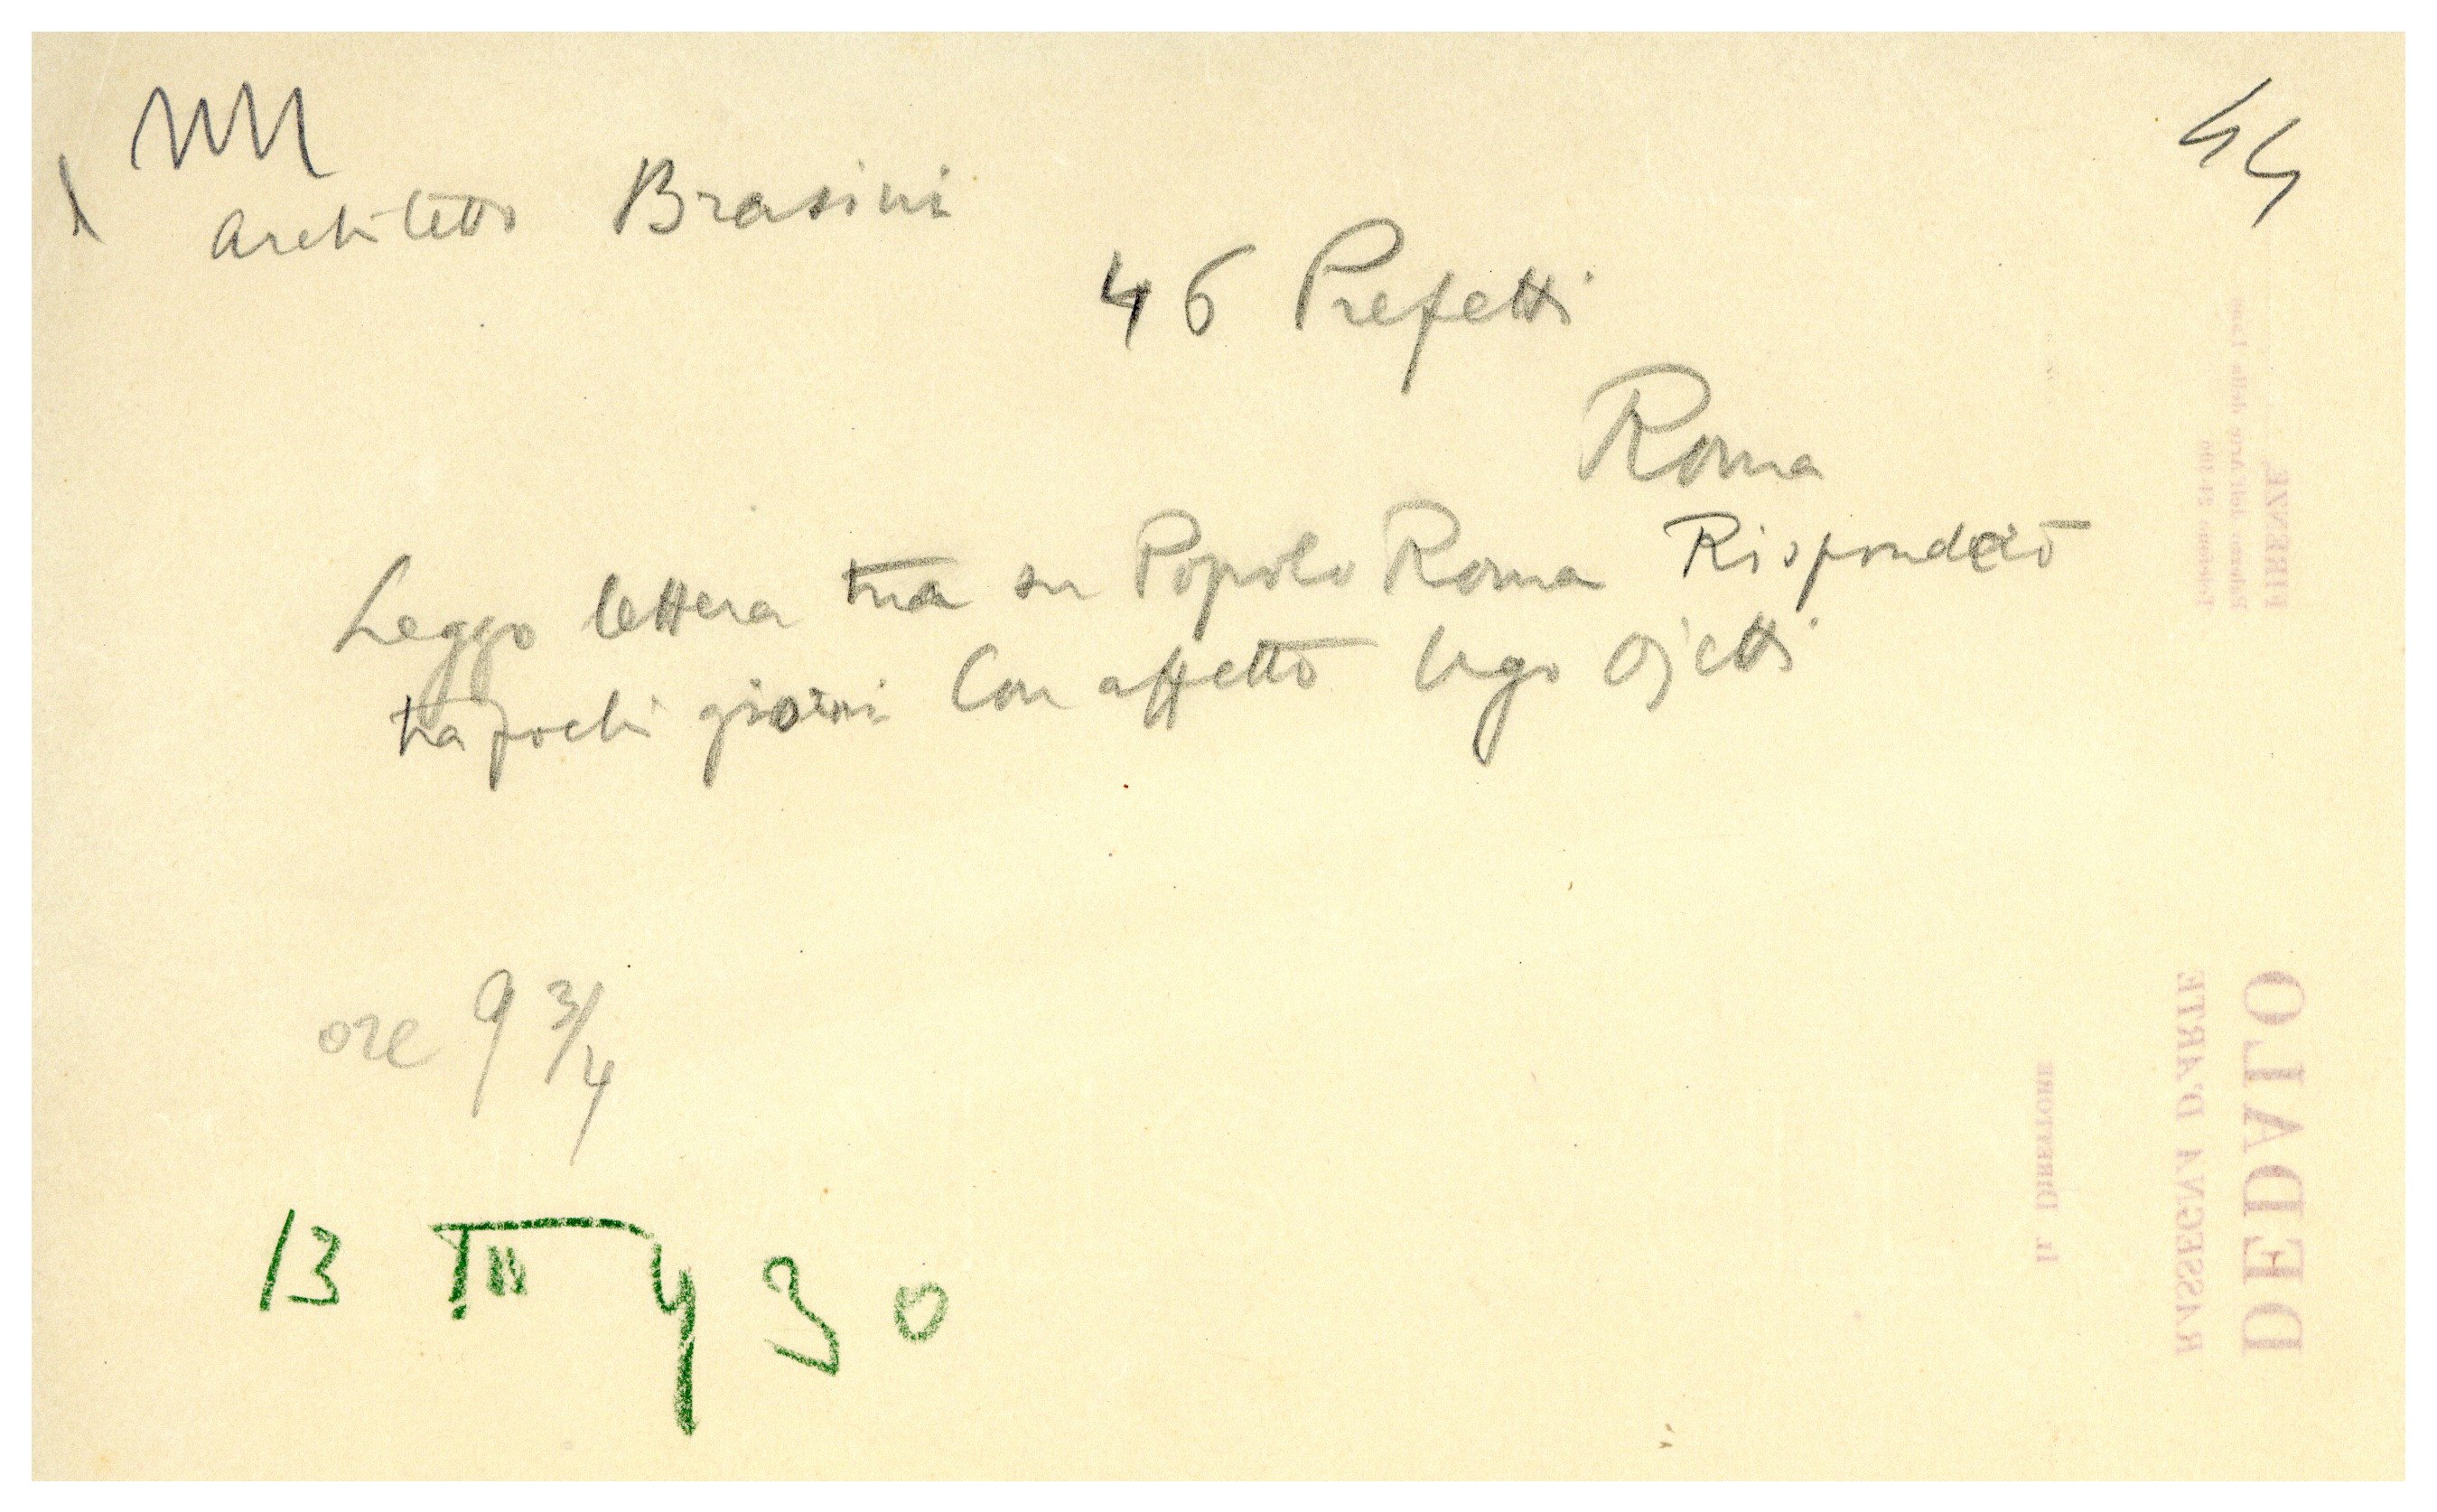 44
Architetto Brasini
46 Prefetti
Roma
Leggo lettera tua su Popolo Roma Risponderò
tra pochi giorni Con affetto Ugo Ojetti
ore 9 3/4
13 III 930
DEDALO
RASSEGNA D'ARTE
IL DIRETTORE
FIRENZE